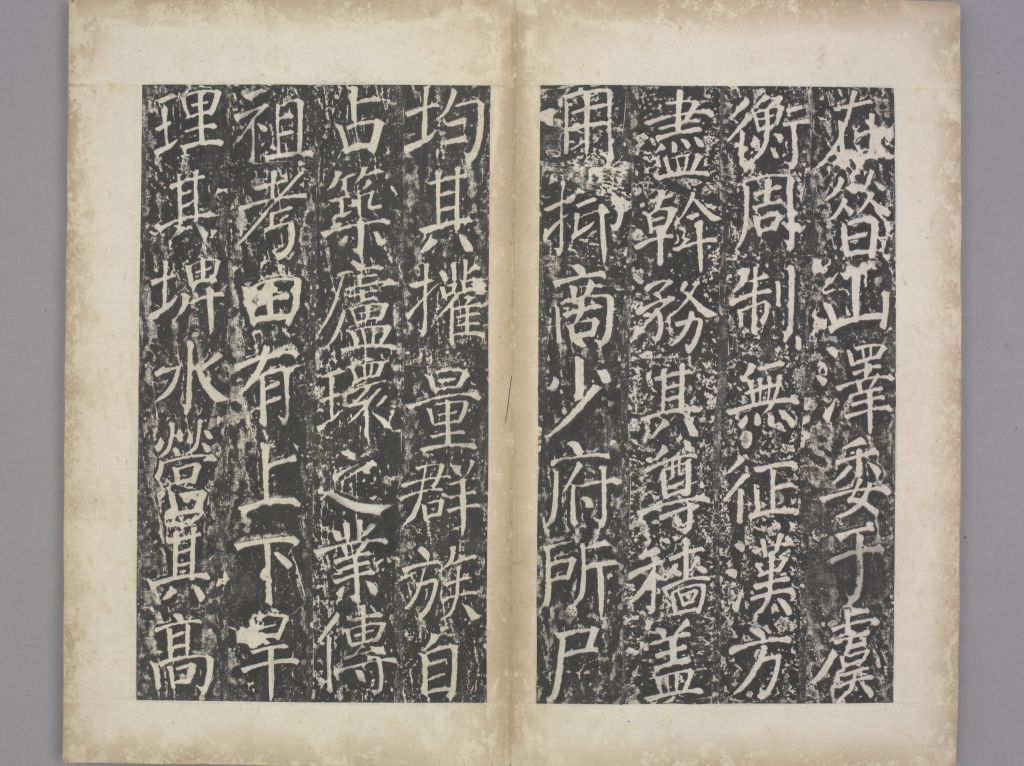 在昝山澤委于虞
衡周制無征漢方
盡斡務其尊穡盖
用抑商少府所尸
均其攉量群族自
占築廬環之業傳
祖考由有上下旱
理其埤水營其高